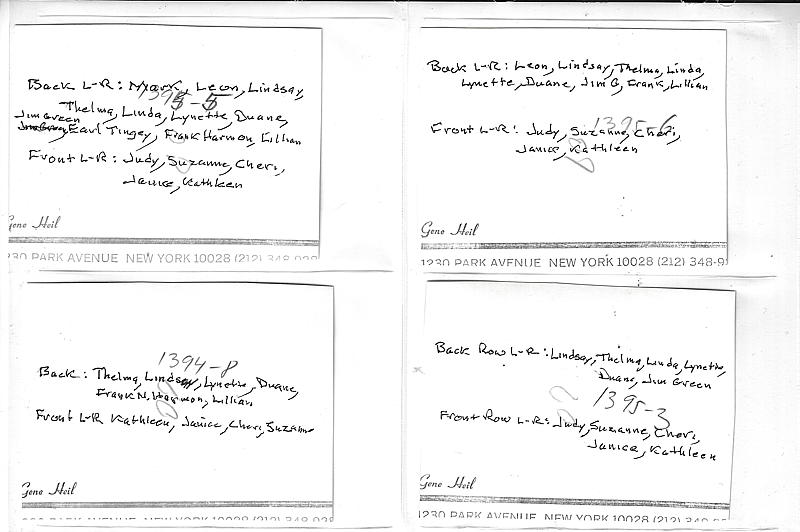 Back L-R: Mark, Leon, Lindsay,
1395-5
Thelma, Linda, Lynette, Duane,
Jim Green
Earl Tingey, Frank Harmon, Lillian
Front L-R: Judy, Suzanne, Cheri,
Janice, Kathleen
Gene Heil
1230 PARK AVENUE NEW YORK 10028 (212) 348-928
Back L-R: Leon, Lindsay, Thelma, Linda,
Lynette, Duane, Jim G, Frank, Lillian
1395-6
Front L-R: Judy, Suzanne, Cheri,
Janice, Kathleen
Gene Heil
1230 PARK AVENUE NEW YORK 10028 (212) 348-9
1394-8
Back: Thelma, Lindsay, Lynette, Duane,
Frank N. Harmon, Lillian
Front L-R Kathleen, Janice, Cheri, Suzanne
Gene Heil
PARK AVENUE NEW YORK 10028 (212) 348-928
Back Row L-R: Lindsay, Thelma, Linda, Lynette,
Duane, Jim Green
1395-3
Front Row L-R: Judy, Suzanne, Cheri,
Janice, Kathleen
Gene Heil
1230 PARK AVENUE NEW YORK 10028 (212)